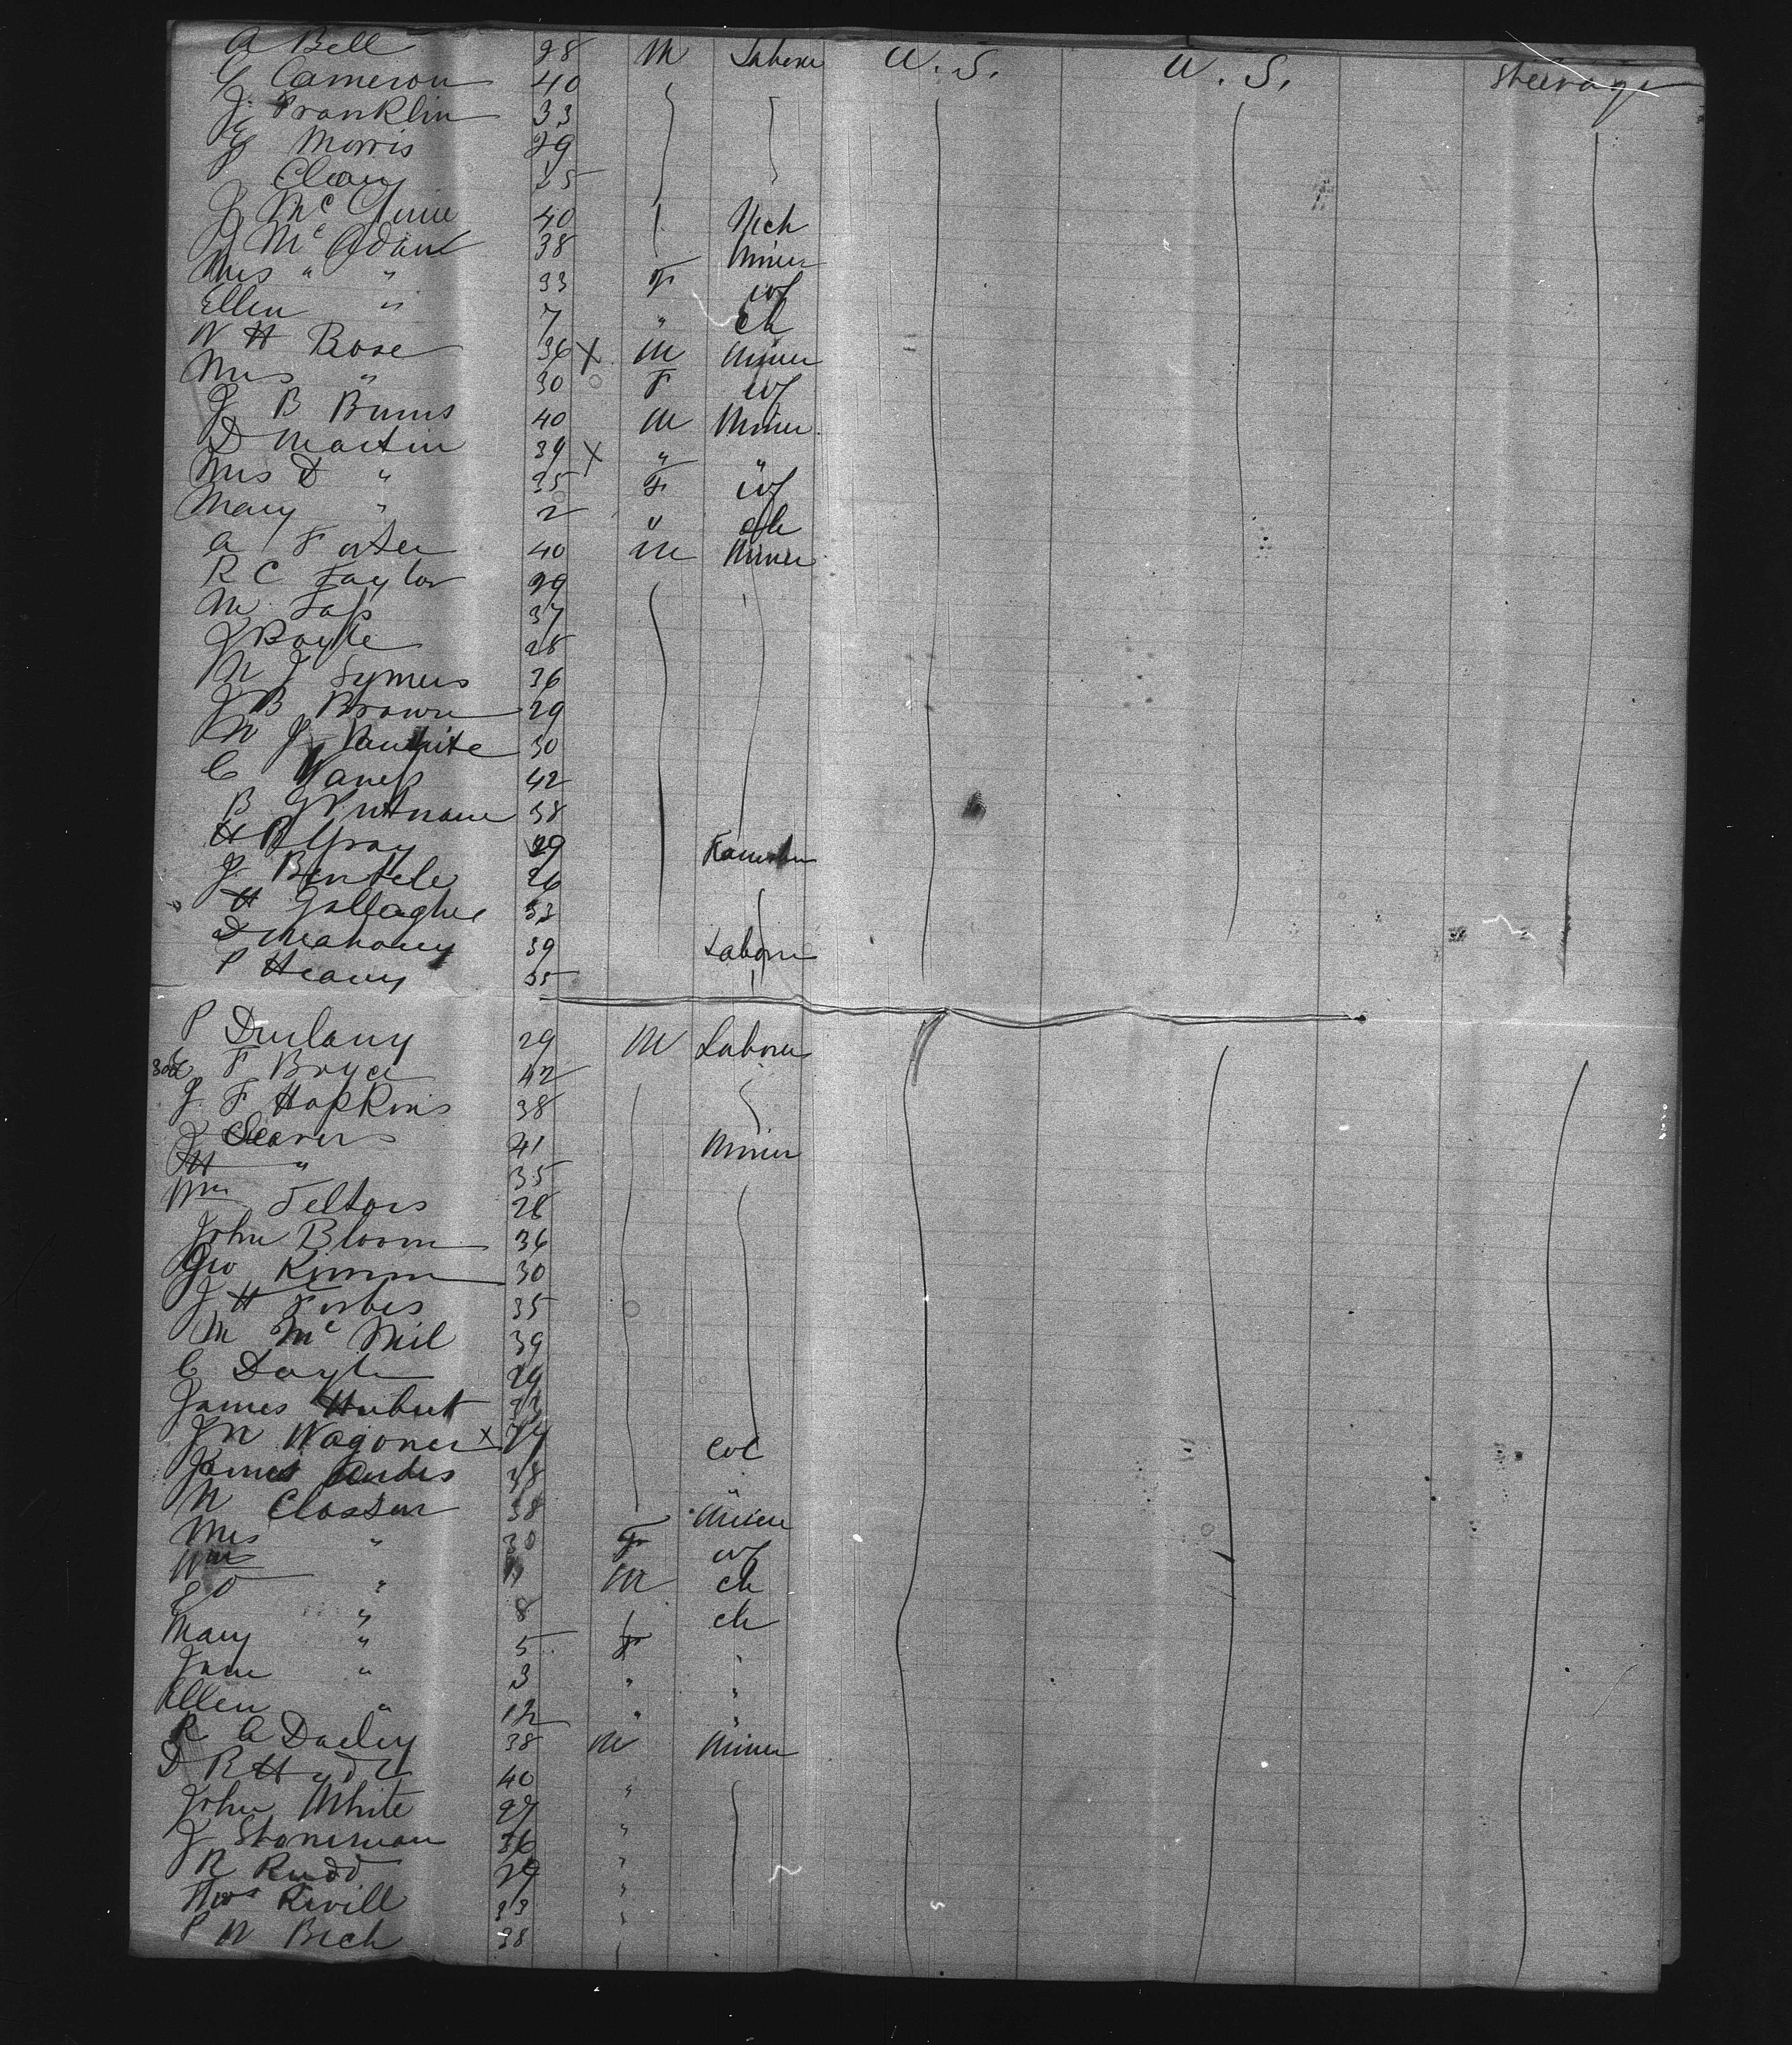 A Bell 28 M Laborer U. S. U. S. Steerage
G Cameron 40
J. Franklin 33
G Morris 29
P Cleary 25
J Mc 40 Mch
J Mc Adam 38 Miner
Mrs " " 33 F wf
Ellen " 7 " ch
W H Bose 36 X M Miner
Mrs " 30 F wf
J B Burns 40 M Miner
D Martin 39 X " "
Mrs D " 35 F wf
Mary " 2 " ch
A Foster 40 M Miner
R C Taylor 29
M 37
J Boyle 28
W J Symes 36
J B Brown 29
W J 30
C 42
B G Putnam 38
H R Gray 29
J Bentele 26
H Gallagher 33
D Mahony 39 Laborer
P Heavy 35
P Dulany 29 M Laborer
F Bryce 42
J. F Hopkins 38
J Seavers 41 Miner
H " 35
Wm Feltors 28
John Bloom 36
Geo Kimm 30
J H Forbes 35
M Mc Neil 39
C Doyle 29
James Hubert
J W Wagoner X Col
James 38 "
W Classen 38 Miner
Mrs " 30 F wf
Wm " 11 M ch
" 8 ch
Mary " 5 F
Jane " 3 " "
Ellen " 12 " "
R C Dailey 38 M Miner
D R Hyde 40 "
John White 27 "
J Stoneman 36 "
R Rudd 29 "
Thos Revill 33 "
P W Beck 38